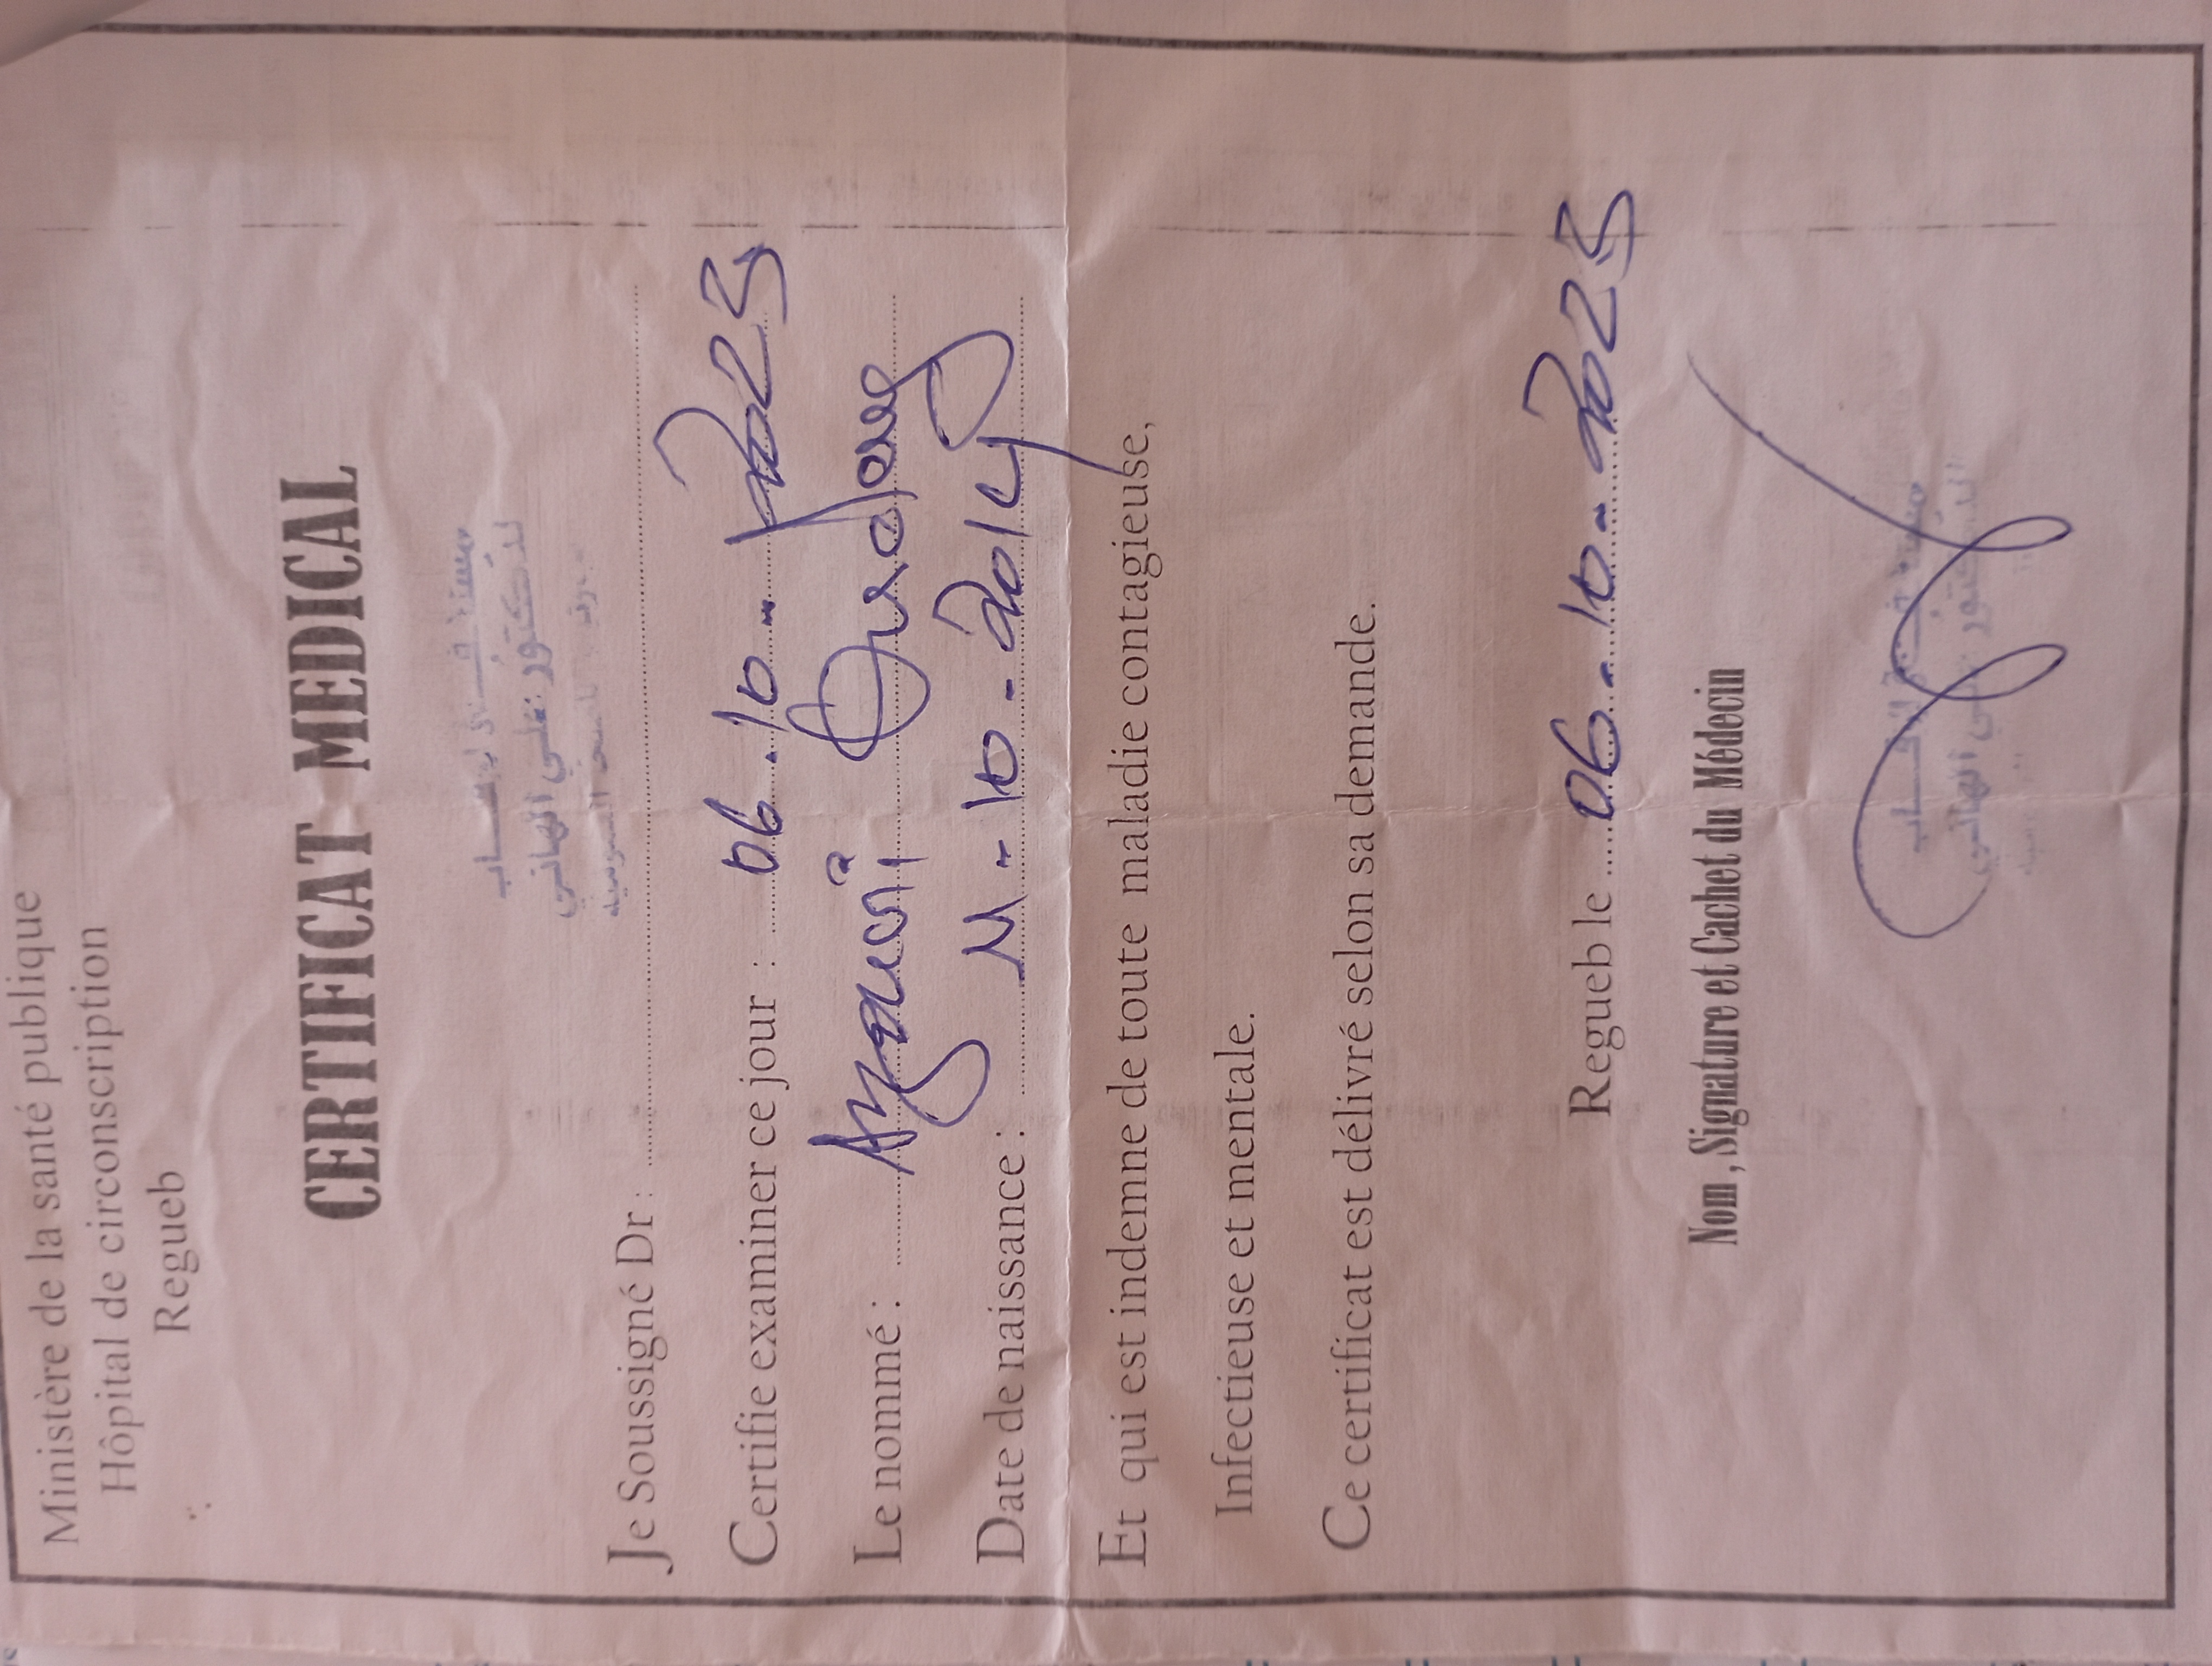 Ministère de la santé publique
Hôpital de circonscription
Regueb
CERTIFICAT MEDICAL
الدكتور علي الهاني
Je Soussigné Dr :
Certifie examiner ce jour : 06.10-2025
Le nommé :
Date de naissance : 11-10-2014
Et qui est indemne de toute maladie contagieuse,
Infectieuse et mentale.
Ce certificat est délivré selon sa demande.
Regueb le 06-10-2025
Nom , Signature et Cachet du Médecin